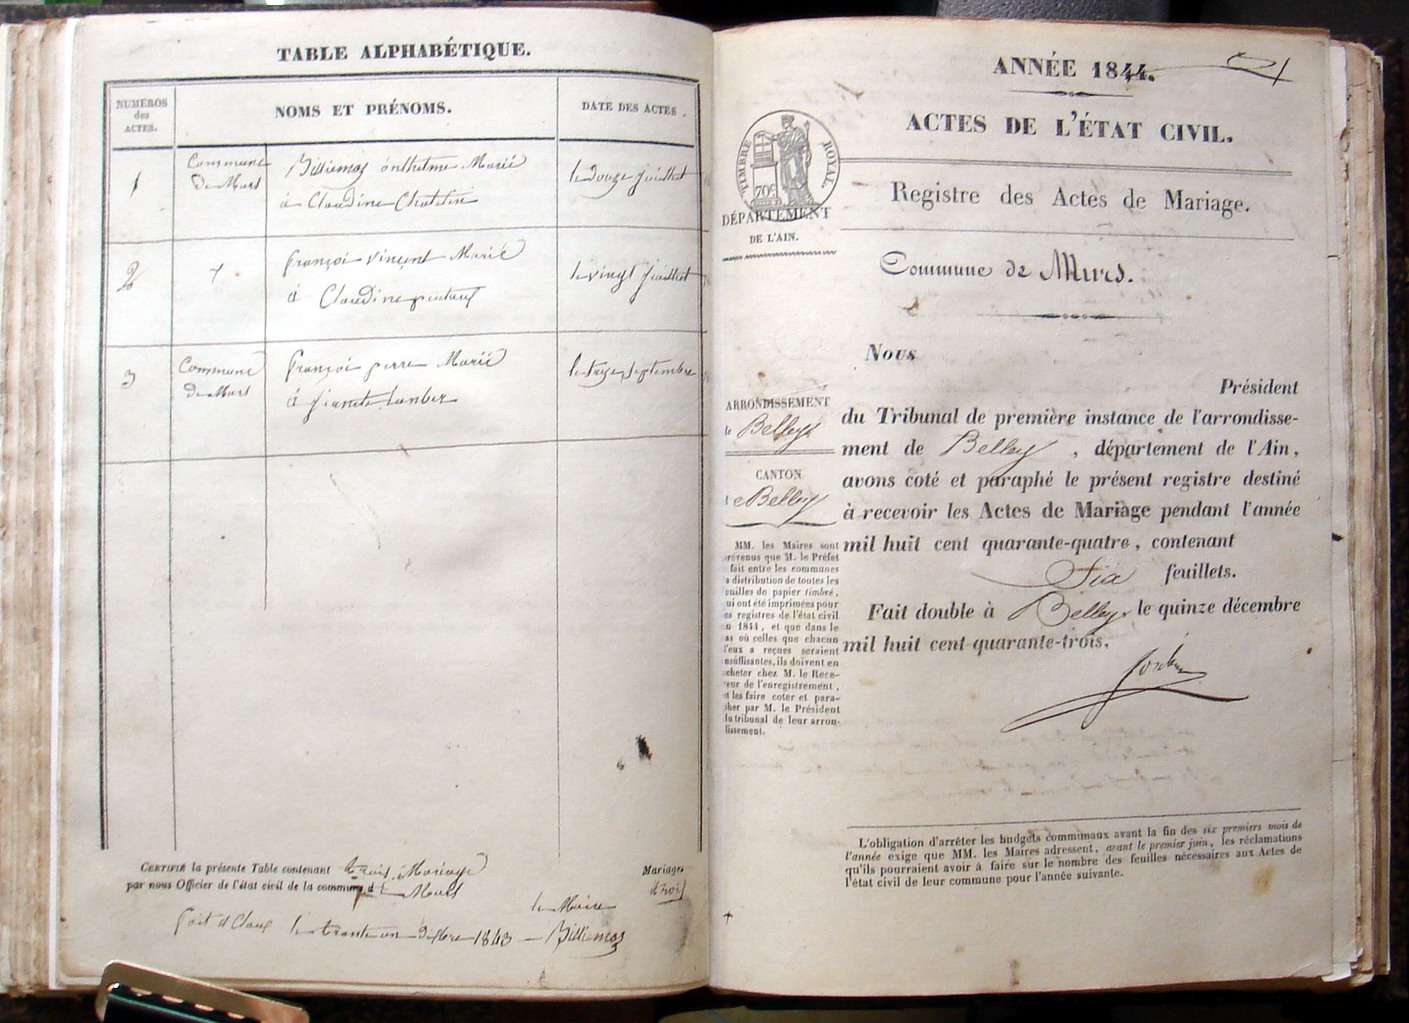 TABLE ALPHABÉTIQUE.
NUMÉROS
des
ACTES.
NOMS ET PRÉNOMS.
DATE DES ACTES
1
Commune
De Murs
Billiemaz Marié
à Claudine
le Douze Juillet
2
françois Vincent Marié
à Claudine
le vingt Juillet
3
Commune
de Murs
françois pierre Marié
à
le septembre
CERTIFIÉ la présente Table contenant trois Mariage
Mariages
par nous Officier de l'état civil de la commune de Murs
trois
le Maire
fait et Clos le trente un 1843 Billiemaz
ANNÉE 1844.
ACTES DE L'ÉTAT CIVIL.
TIMBRE ROYAL.
70c
DÉPARTEMENT
DE L'AIN.
Registre des Actes de Mariage.
Commune de Murs.
ARRONDISSEMENT
de Belley
CANTON
de Belley
MM. les Maires sont
prévenus que M. le Préfet
fait entre les communes
la distribution de toutes les
feuilles de papier timbré,
qui ont été imprimées pour
les registres de l'état civil
en 1844, et que dans le
cas où celles que chacun
d'eux a reçues seraient
insuffisantes, ils doivent en
acheter chez M. le Rece-
veur de l'enregistrement,
et les faire coter et para-
pher par M. le Président
du tribunal de leur arron-
dissement.
Nous
Président
du Tribunal de première instance de l'arrondisse-
ment de Belley, département de l'Ain,
avons coté et paraphé le présent registre destiné
à recevoir les Actes de Mariage pendant l'année
mil huit cent quarante-quatre, contenant
Six feuillets.
Fait double à Belley, le quinze décembre
mil huit cent quarante-trois.
L'obligation d'arrêter les budgets communaux avant la fin des six premiers mois de
l'année exige que MM. les Maires adressent, avant le premier juin, les réclamations
qu'ils pourraient avoir à faire sur le nombre des feuilles nécessaires aux Actes de
l'état civil de leur commune pour l'année suivante.